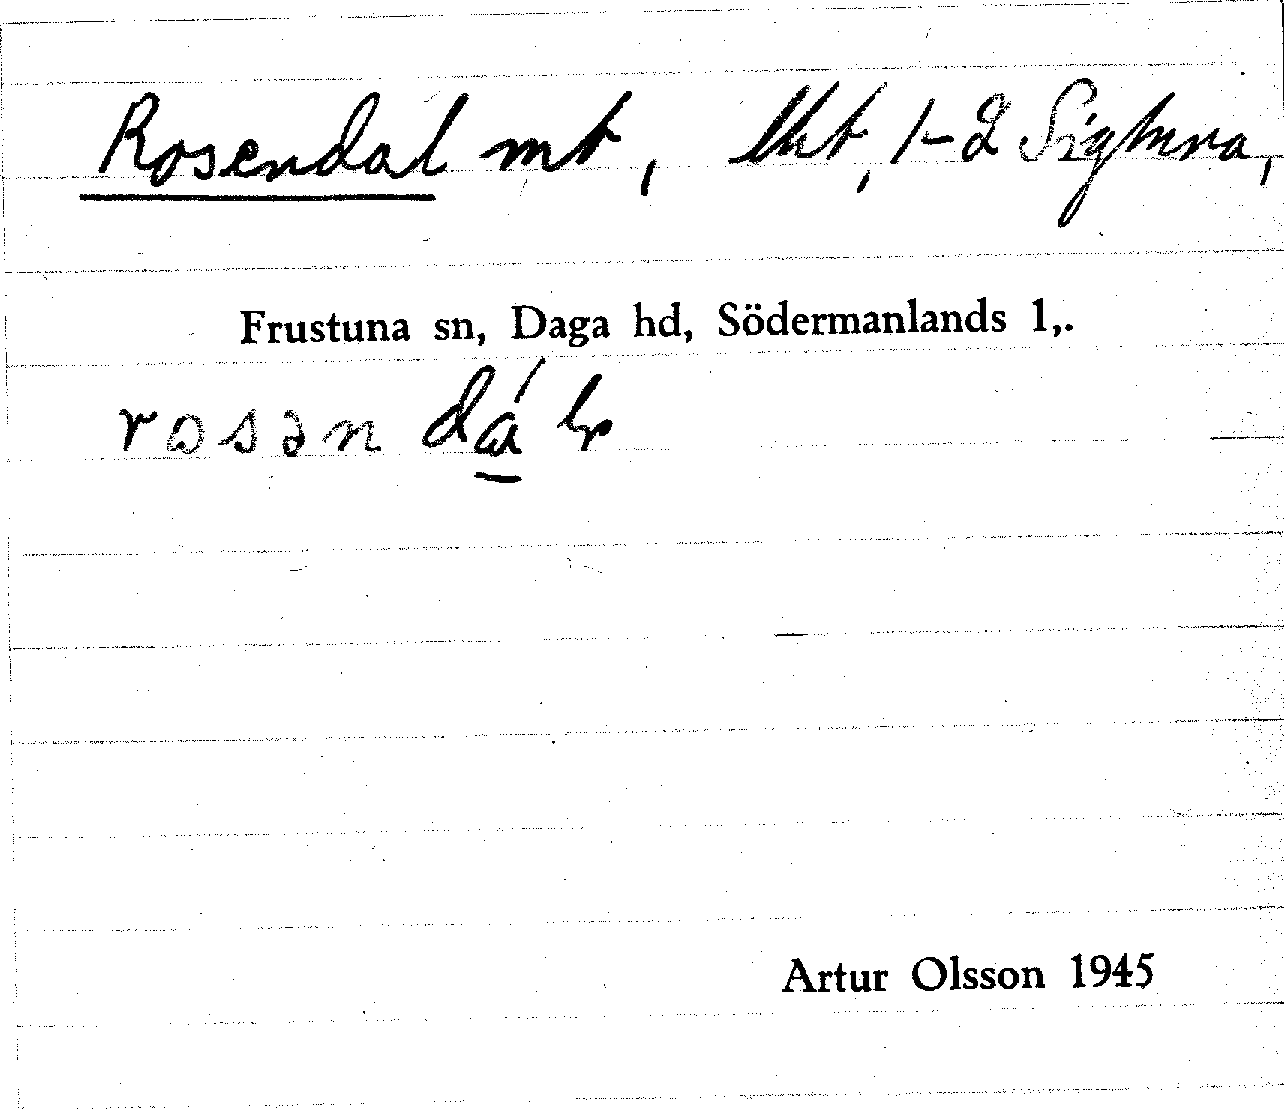 Rosendal mt, lht, 1-2 Sigtuna,
Frustuna sn, Daga hd, Södermanlands l,.
rosən dá
Artur Olsson 1945